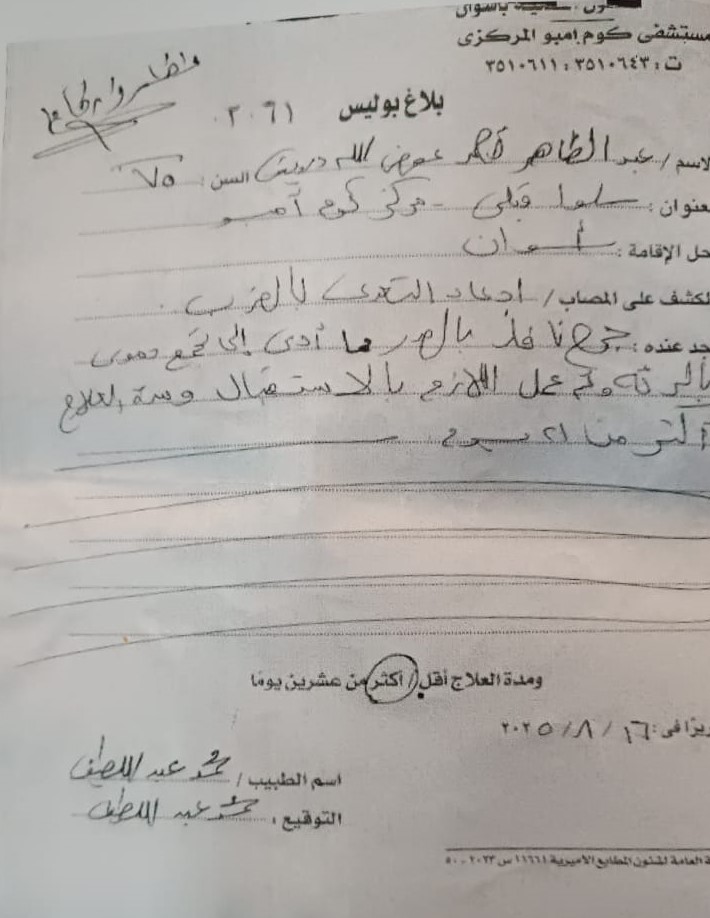 بأسوان
مستشفى كوم إمبو المركزى
ت : ٣٥١٠٦٤٣ : ٣٥١٠٦١١
بلاغ بوليس ٢٠٦١
لاسم / عبد الطاهر محمد عوض الله درويش السن : ٧٥
عنوان : سلوا قبلى - مركز كوم أمبو
حل الإقامة : أسوان
لكشف على المصاب / ادعاء التعدى بالضرب .
جد عنده : جرح نافذ بالصدر مما أدى إلى تجمع دموى
بالرئة وتم عمل اللازم بالاستقبال ومدة العلاج
أكثر من ٢١ يوم
ومدة العلاج أقل / أكثر من عشرين يومًا
ريرًا فى : ١٦ / ٨ / ٢٠٢٥
اسم الطبيب / محمد عبد اللطيف
التوقيع : محمد عبد اللطيف
ة العامة لشئون المطابع الأميرية